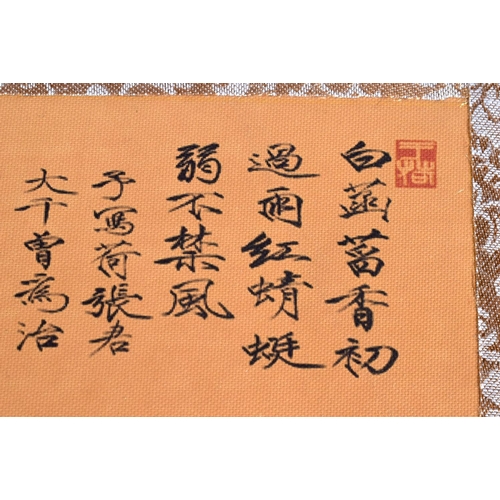 白菡萏香初
過雨紅蜻蜓
弱不禁風
予寫荷張君
大千曾為治